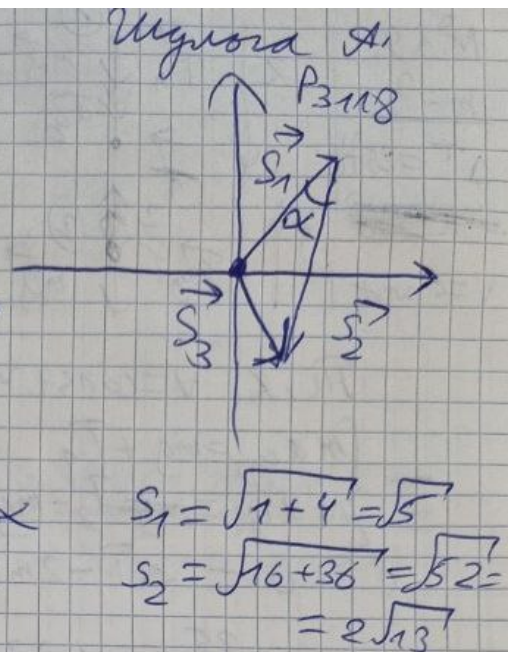 Шулога А.
P3118
S₁
α
S₃
S₂
S₁ = √(1+4) = √5
S₂ = √(16+36) = √52 =
= 2√13